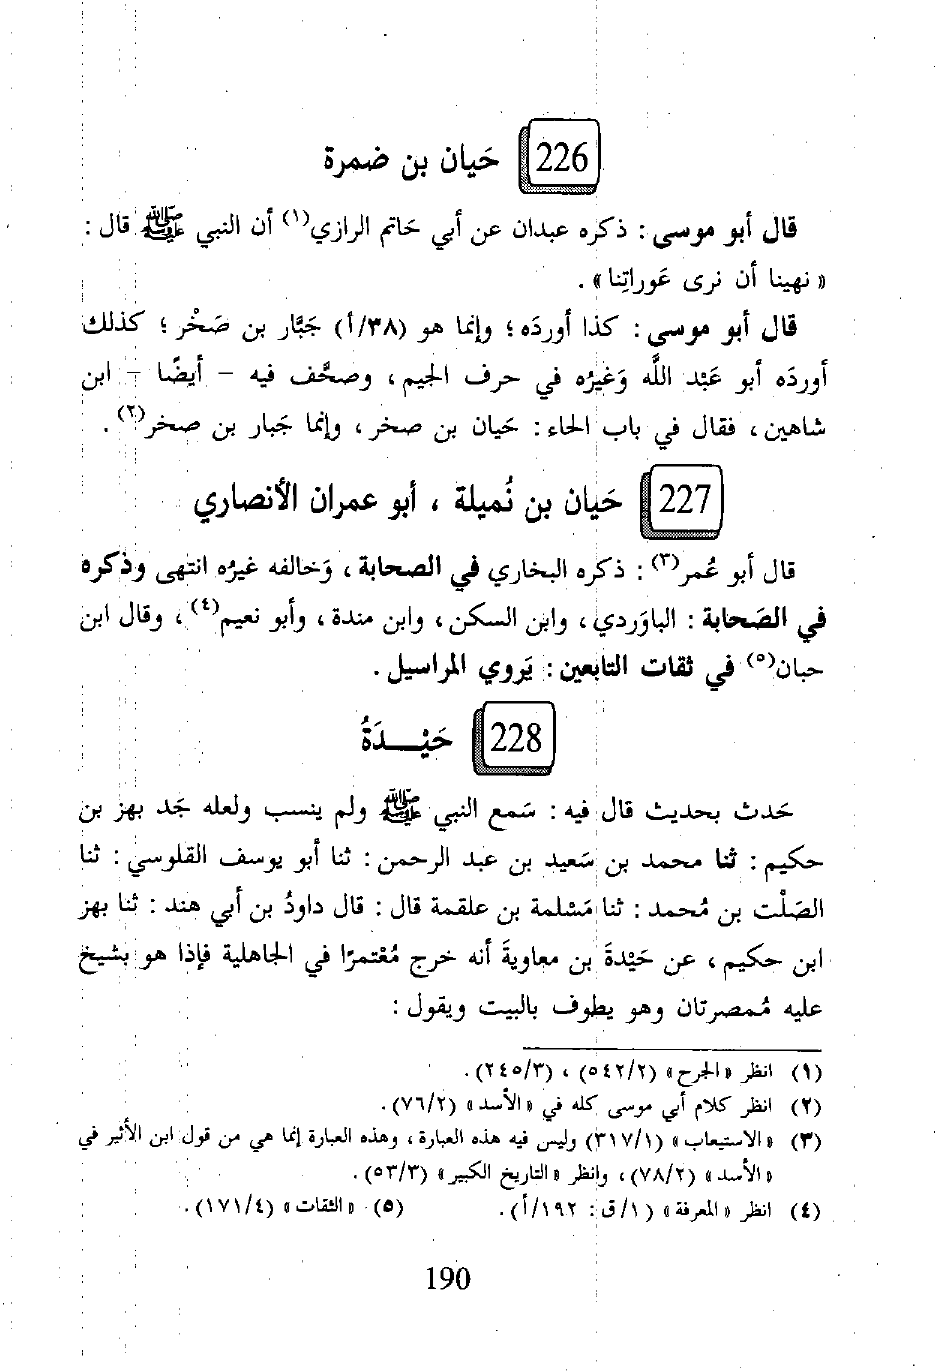 226 حَيان بن ضمرة
قال أبو موسى : ذكره عبدان عن أبي حَاتم الرازي(١) أن النبي ﷺ قال :
« نهينا أن نرى عَوراتِنا» .
قال أبو موسى : كذا أوردَه ؛ وإنما هو (٣٨/أ) جَبَّار بن صَخْر ؛ كذلك
أوردَه أبو عَبْد اللَّه وَغيرُه في حرف الجيم ، وصحَّف فيه – أيضًا – ابن
شاهين ، فقال في باب الحاء : حَيان بن صخر ، وإنما جَبار بن صخر(٢) .
227 حَيان بن نُميلة ، أبو عمران الأنصاري
قال أبو عُمر(٣) : ذكره البخاري في الصحابة ، وَخالفه غيرُه انتهى وذكره
في الصَحابة : الباوَردي ، وابن السكن ، وابن مندة ، وأبو نعيم(٤) ، وقال ابن
حبان(٥) في ثقات التابعين : يَروي المراسيل .
228 حَيْـــدَةُ
حَدث بحديث قال فيه : سَمع النبي ﷺ ولم ينسب ولعله جَد بهز بن
حكيم : ثنا محمد بن سَعيد بن عبد الرحمن : ثنا أبو يوسف القلوسي : ثنا
الصَلْت بن مُحمد : ثنا مَسْلمة بن علقمة قال : قال داودُ بن أبي هند : ثنا بهز
ابن حكيم ، عن حَيْدةَ بن معاويةَ أنه خرج مُعْتمرًا في الجاهلية فإذا هو بشيخ
عليه مُمصرتان وهو يطوف بالبيت ويقول :
(١) انظر «الجرح» (٥٤٢/٢) ، (٢٤٥/٣) .
(٢) انظر كلام أبي موسى كله في «الأسد» (٧٦/٢) .
(٣) «الاستيعاب» (٣١٧/١) وليس فيه هذه العبارة ، وهذه العبارة إنما هي من قول ابن الأثير في
«الأسد» (٧٨/٢) ، وانظر «التاريخ الكبير» (٥٣/٣) .
(٤) انظر «المعرفة» (١/ق : ١٩٢/أ) . (٥) «الثقات» (١٧١/٤) .
190